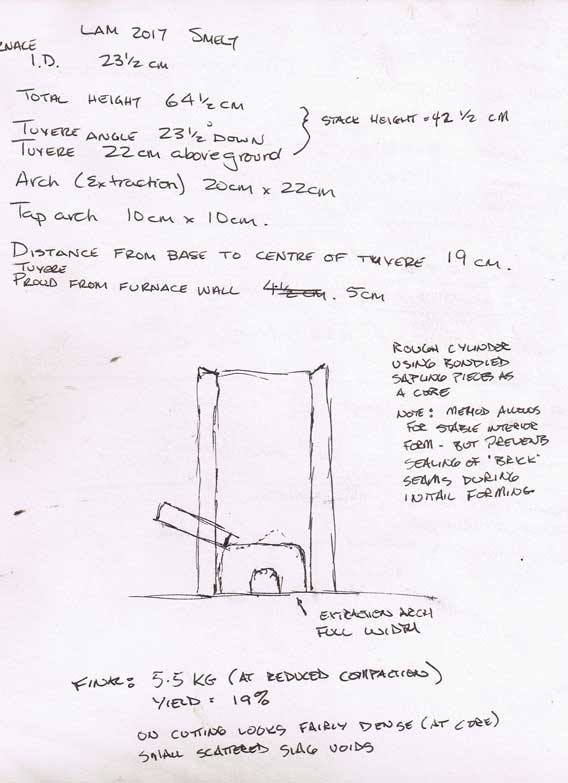 LAM 2017 SMELT
NACE
I.D. 23 1/2 cm
TOTAL HEIGHT 64 1/2 cm
TUYERE ANGLE 23 1/2° DOWN
TUYERE 22 cm above ground
STACK HEIGHT = 42 1/2 cm
Arch (Extraction) 20cm x 22cm
Tap arch 10cm x 10cm.
DISTANCE FROM BASE TO CENTRE OF TUYERE 19 cm.
TUYERE
PROUD FROM FURNACE WALL 4 1/2 cm. 5cm
ROUGH CYLINDER
USING BUNDLED
SAPLING PIECES AS
A CORE
NOTE: METHOD ALLOWS
FOR STABLE INTERIOR
FORM - BUT PREVENTS
SEALING OF 'BRICK'
SEAMS DURING
INITAIL FORMING
EXTRACTION ARCH
FULL WIDTH
FINAL: 5.5 KG (AT REDUCED COMPACTION)
YIELD = 19%
ON CUTTING LOOKS FAIRLY DENSE (AT CORE)
SMALL SCATTERED SLAG VOIDS